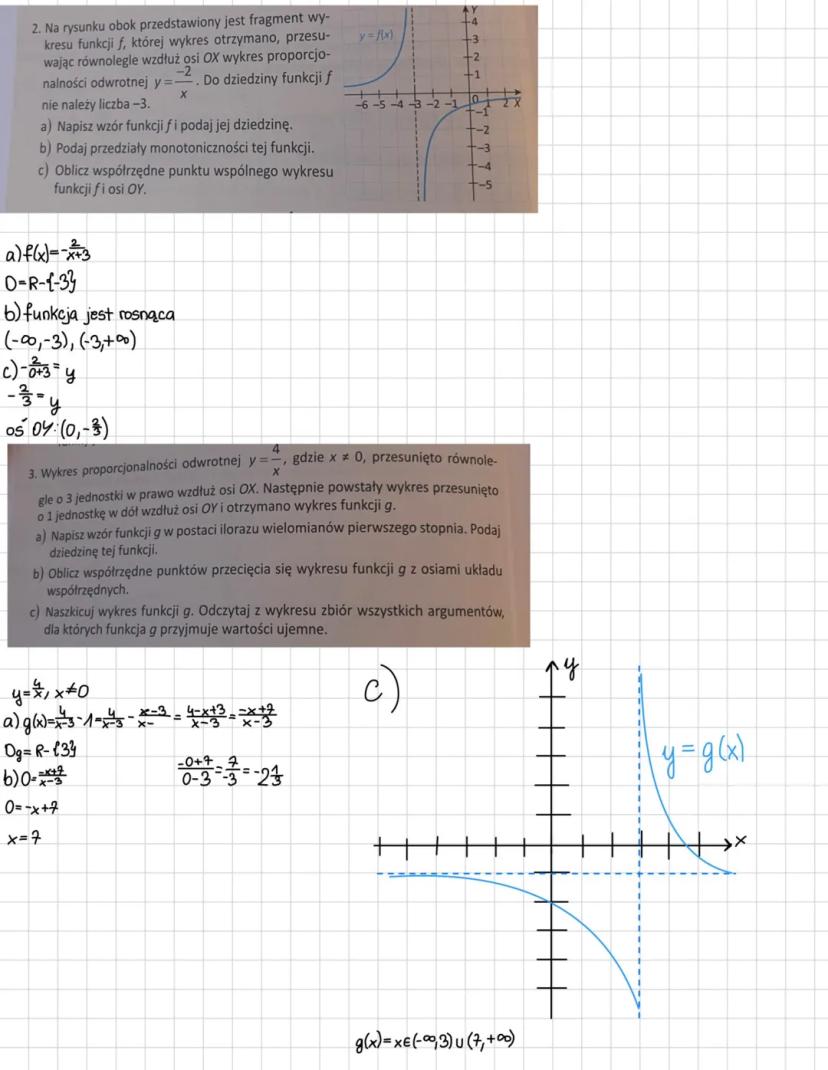 2. Na rysunku obok przedstawiony jest fragment wy-
kresu funkcji f, której wykres otrzymano, przesu-
wając równolegle wzdłuż osi OX wykres proporcjo-
nalności odwrotnej y = -2/x. Do dziedziny funkcji f
nie należy liczba –3.
a) Napisz wzór funkcji f i podaj jej dziedzinę.
b) Podaj przedziały monotoniczności tej funkcji.
c) Oblicz współrzędne punktu wspólnego wykresu
funkcji f i osi OY.
y = f(x)
Y
4
3
2
1
-6 -5 -4 -3 -2 -1 0 1 2 X
-1
-2
-3
-4
-5
a) f(x)=-2/x+3
D=R-{-3}
b) funkcja jest rosnąca
(-∞,-3), (-3,+∞)
c) -2/0+3 = y
-2/3 = y
oś OY: (0,-2/3)
3. Wykres proporcjonalności odwrotnej y = 4/x, gdzie x ≠ 0, przesunięto równole-
gle o 3 jednostki w prawo wzdłuż osi OX. Następnie powstały wykres przesunięto
o 1 jednostkę w dół wzdłuż osi OY i otrzymano wykres funkcji g.
a) Napisz wzór funkcji g w postaci ilorazu wielomianów pierwszego stopnia. Podaj
dziedzinę tej funkcji.
b) Oblicz współrzędne punktów przecięcia się wykresu funkcji g z osiami układu
współrzędnych.
c) Naszkicuj wykres funkcji g. Odczytaj z wykresu zbiór wszystkich argumentów,
dla których funkcja g przyjmuje wartości ujemne.
y=4/x, x≠0
a) g(x)=4/x-3 -1=4/x-3 - x-3/x- = 4-x+3/x-3 = -x+7/x-3
Dg=R-{3}
b) 0=-x+7/x-3
0=-x+7
x=7
-0+7/0-3 = 7/-3 = -2 1/3
c)
y
y = g(x)
x
g(x)=x∈(-∞,3)∪(7,+∞)